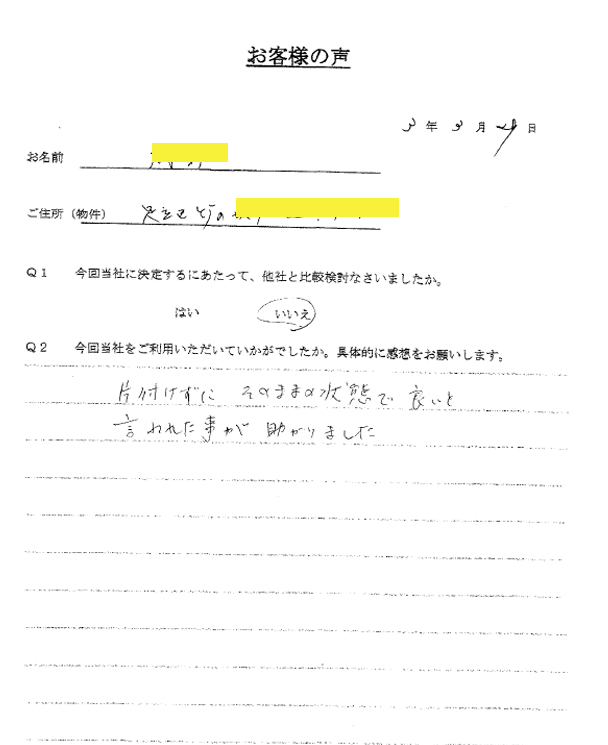 お客様の声
3年3月29日
お名前
ご住所（物件） 足立区
Q1 今回当社に決定するにあたって、他社と比較検討なさいましたか。
はい いいえ
Q2 今回当社をご利用いただいていかがでしたか。具体的に感想をお願いします。
片付けずに そのままの状態で良いと
言われた事が 助かりました